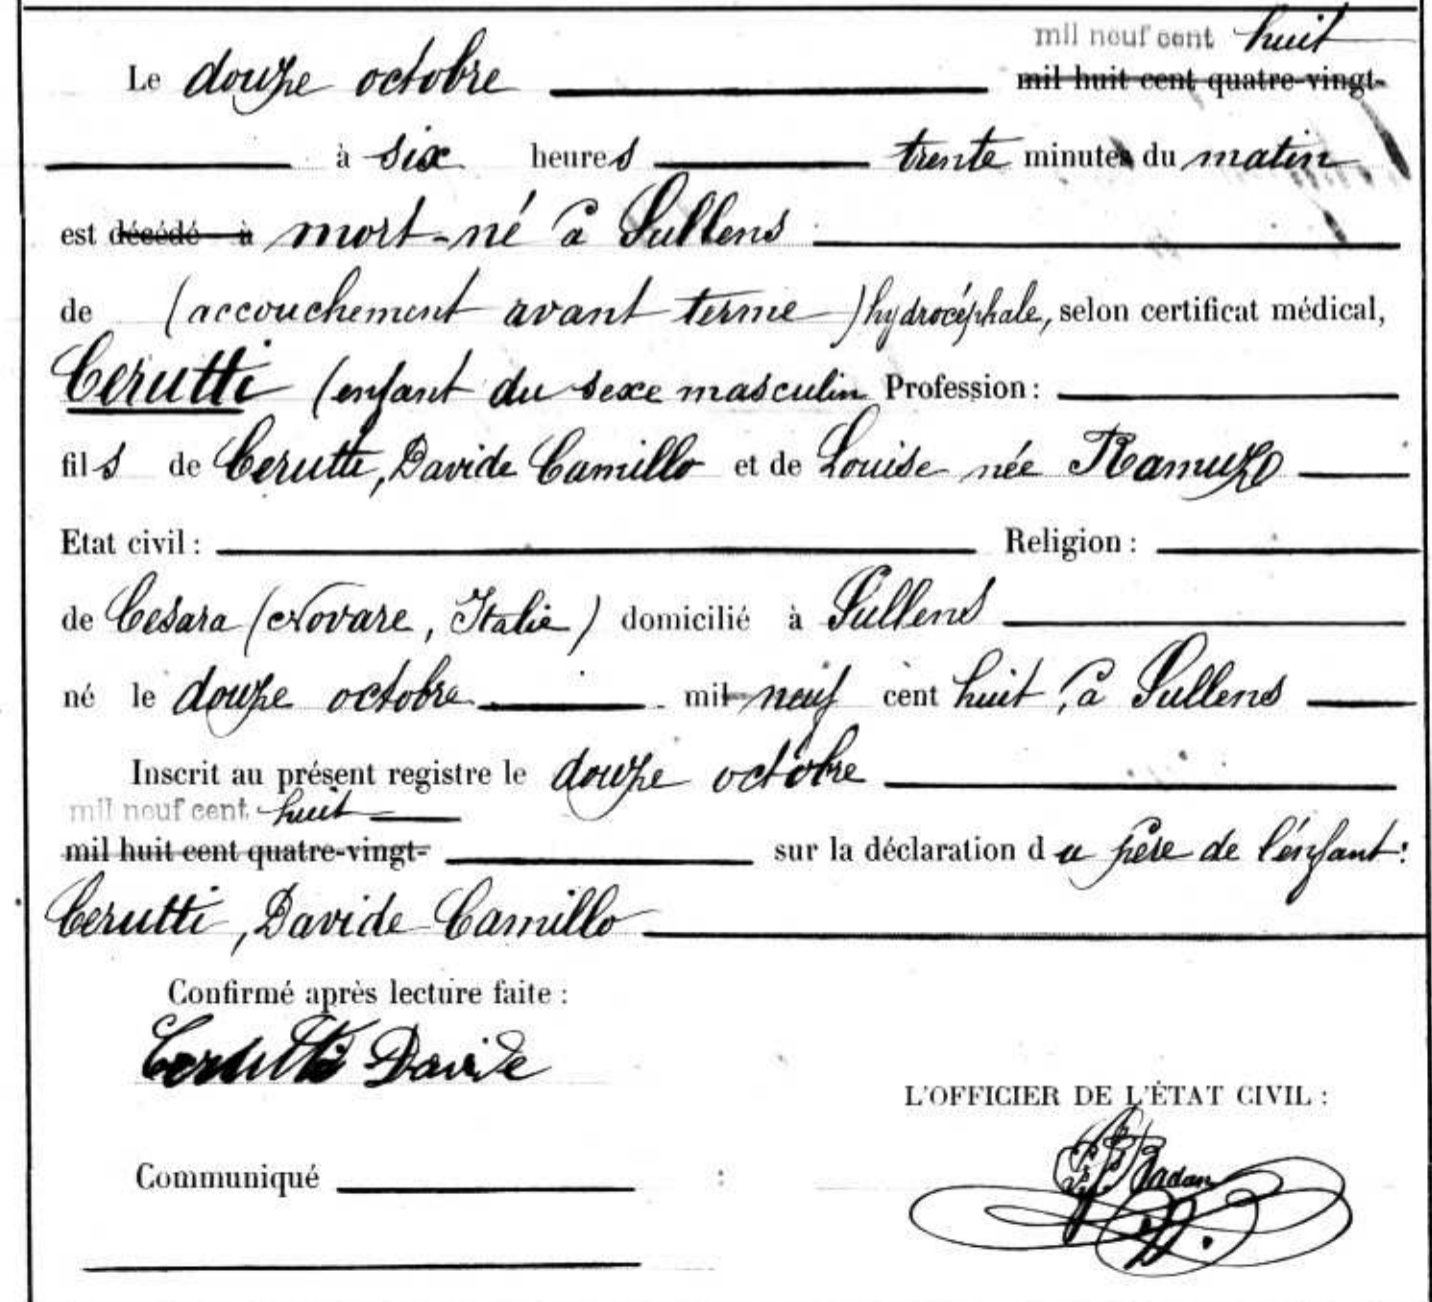 mil neuf cent huit
Le douze octobre mil huit cent quatre-vingt-
à six heures trente minutes du matin
est décédé à mort-né à Sullens
de (accouchement avant terme) hydrocéphale, selon certificat médical,
Cerutti (enfant du sexe masculin Profession :
fils de Cerutti, Davide Camillo et de Louise née Ramuz
Etat civil : Religion :
de Cesara (Novare, Italie) domicilié à Sullens
né le douze octobre mil neuf cent huit, à Sullens
Inscrit au présent registre le douze octobre
mil neuf cent huit
mil huit cent quatre-vingt- sur la déclaration du père de l'enfant :
Cerutti, Davide Camillo
Confirmé après lecture faite :
Cerutti Davide
L'OFFICIER DE L'ÉTAT CIVIL :
Badan
Communiqué :